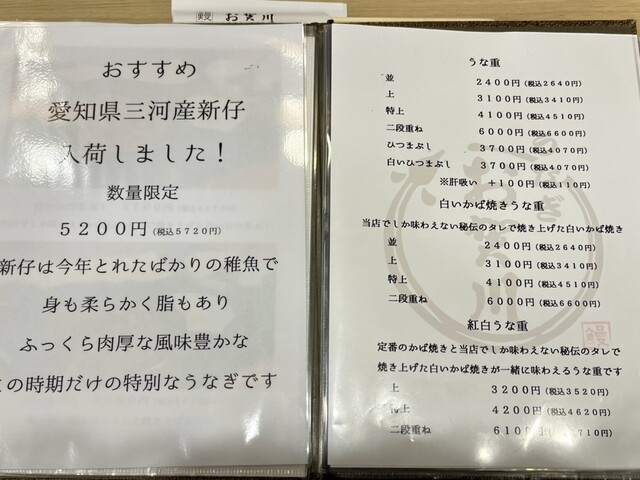 おすすめ
愛知県三河産新仔
入荷しました！
数量限定
５２００円(税込５７２０円)
新仔は今年とれたばかりの稚魚で
身も柔らかく脂もあり
ふっくら肉厚な風味豊かな
この時期だけの特別なうなぎです
うな重
並 ２４００円(税込２６４０円)
上 ３１００円(税込３４１０円)
特上 ４１００円(税込４５１０円)
二段重ね ６０００円(税込６６００円)
ひつまぶし ３７００円(税込４０７０円)
白いひつまぶし ３７００円(税込４０７０円)
※肝吸い ＋１００円(税込１１０円)
白いかば焼きうな重
当店でしか味わえない秘伝のタレで焼き上げた白いかば焼き
並 ２４００円(税込２６４０円)
上 ３１００円(税込３４１０円)
特上 ４１００円(税込４５１０円)
二段重ね ６０００円(税込６６００円)
紅白うな重
定番のかば焼きと当店でしか味わえない秘伝のタレで
焼き上げた白いかば焼きが一緒に味わえるうな重です
上 ３２００円(税込３５２０円)
特上 ４２００円(税込４６２０円)
二段重ね ６１００円(税込６７１０円)
鰻